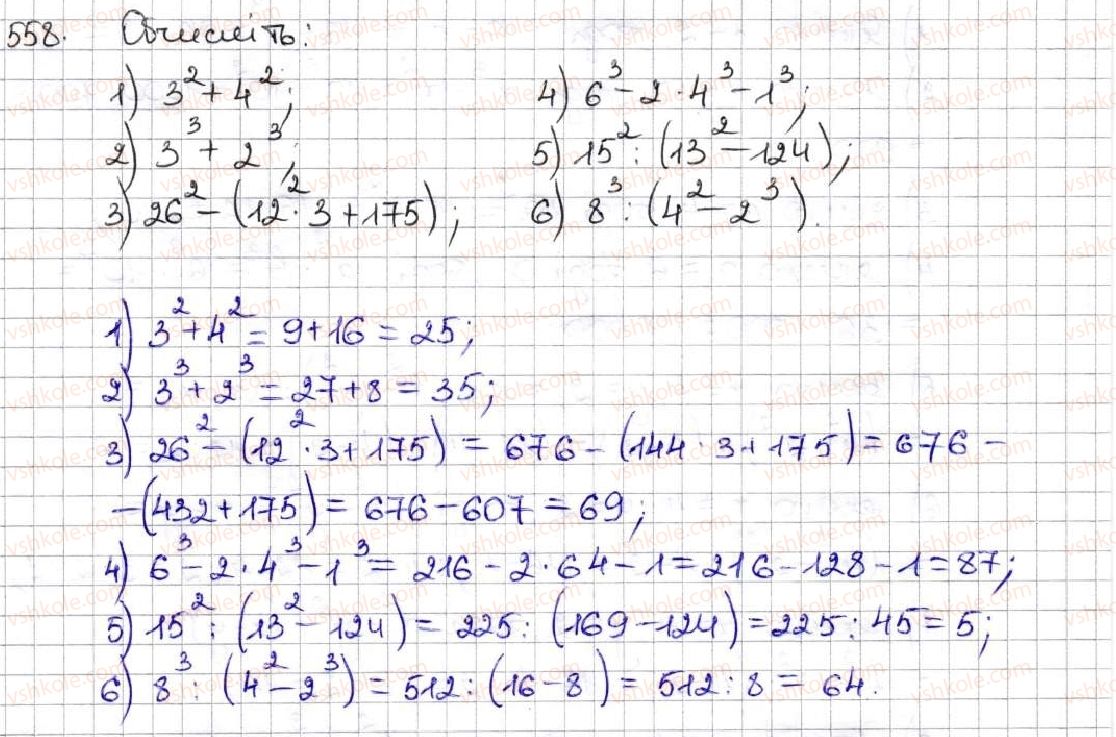 558. Обчисліть:
1) 3² + 4²;
2) 3³ + 2³;
3) 26² - (12² · 3 + 175);
4) 6³ - 2 · 4³ - 1³;
5) 15² : (13² - 124);
6) 8³ : (4² - 2³).
1) 3² + 4² = 9 + 16 = 25;
2) 3³ + 2³ = 27 + 8 = 35;
3) 26² - (12² · 3 + 175) = 676 - (144 · 3 + 175) = 676 -
- (432 + 175) = 676 - 607 = 69;
4) 6³ - 2 · 4³ - 1³ = 216 - 2 · 64 - 1 = 216 - 128 - 1 = 87;
5) 15² : (13² - 124) = 225 : (169 - 124) = 225 : 45 = 5;
6) 8³ : (4² - 2³) = 512 : (16 - 8) = 512 : 8 = 64.
vshkole.com